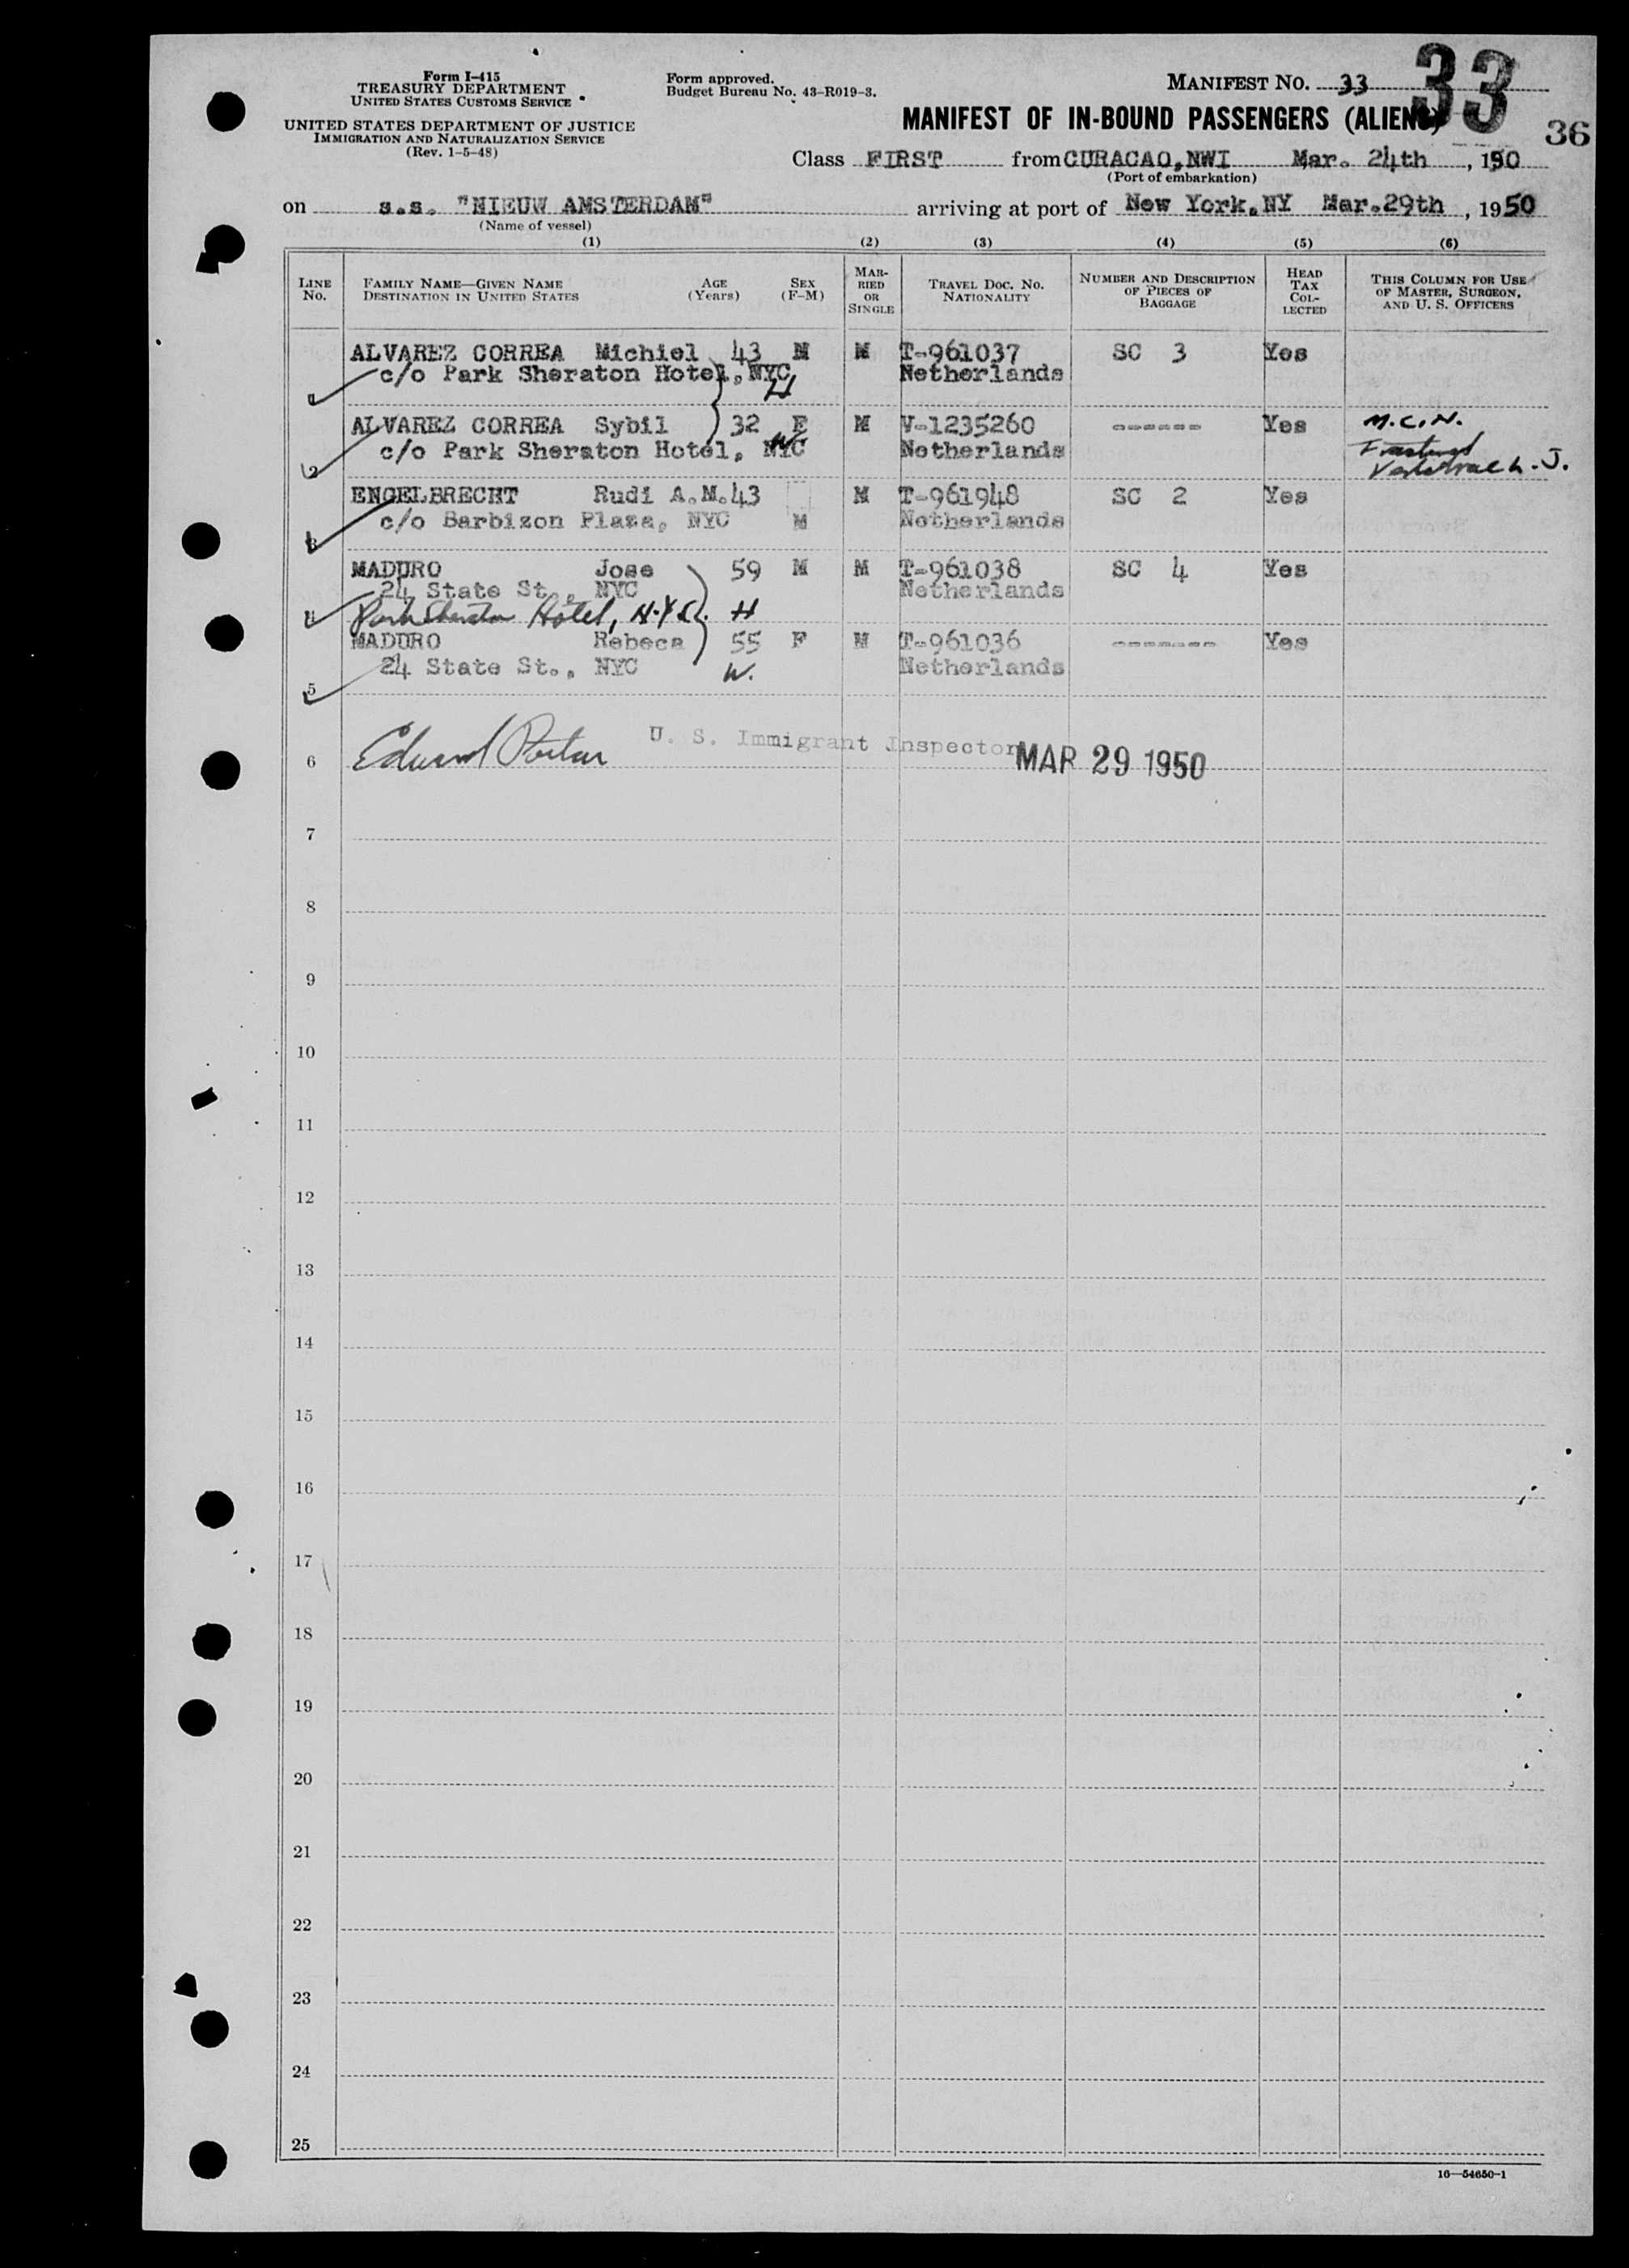 Form I-415
TREASURY DEPARTMENT
UNITED STATES CUSTOMS SERVICE
UNITED STATES DEPARTMENT OF JUSTICE
IMMIGRATION AND NATURALIZATION SERVICE
(Rev. 1-5-48)
Form approved.
Budget Bureau No. 43-R019-3.
MANIFEST NO. 33
33
MANIFEST OF IN-BOUND PASSENGERS (ALIENS)
36
Class FIRST from CURACAO, NWI Mar. 24th, 1950
(Port of embarkation)
on s.s. "NIEUW AMSTERDAM" arriving at port of New York, NY Mar. 29th, 1950
(Name of vessel)
(1) (2) (3) (4) (5) (6)
LINE No. FAMILY NAME—GIVEN NAME DESTINATION IN UNITED STATES AGE (Years) SEX (F-M) MARRIED OR SINGLE TRAVEL DOC. NO. NATIONALITY NUMBER AND DESCRIPTION OF PIECES OF BAGGAGE HEAD TAX COLLECTED THIS COLUMN FOR USE OF MASTER, SURGEON, AND U. S. OFFICERS
ALVAREZ CORREA Michiel 43 M M T-961037 SC 3 Yes
c/o Park Sheraton Hotel, NYC Netherlands
1 H
ALVAREZ CORREA Sybil 32 F M V-1235260 ------ Yes M.C.N.
c/o Park Sheraton Hotel, NYC Netherlands
2 W
ENGELBRECHT Rudi A.M. 43 M T-961948 SC 2 Yes
c/o Barbizon Plaza, NYC M Netherlands
3
MADURO Jose 59 M M T-961038 SC 4 Yes
24 State St., NYC Netherlands
4 Park Sheraton Hotel, N.Y.C. H
MADURO Rebeca 55 F M T-961036 ------- Yes
24 State St., NYC W. Netherlands
5
U. S. Immigrant Inspector
6 Edward MAR 29 1950
7
8
9
10
11
12
13
14
15
16
17
18
19
20
21
22
23
24
25
16—54650-1